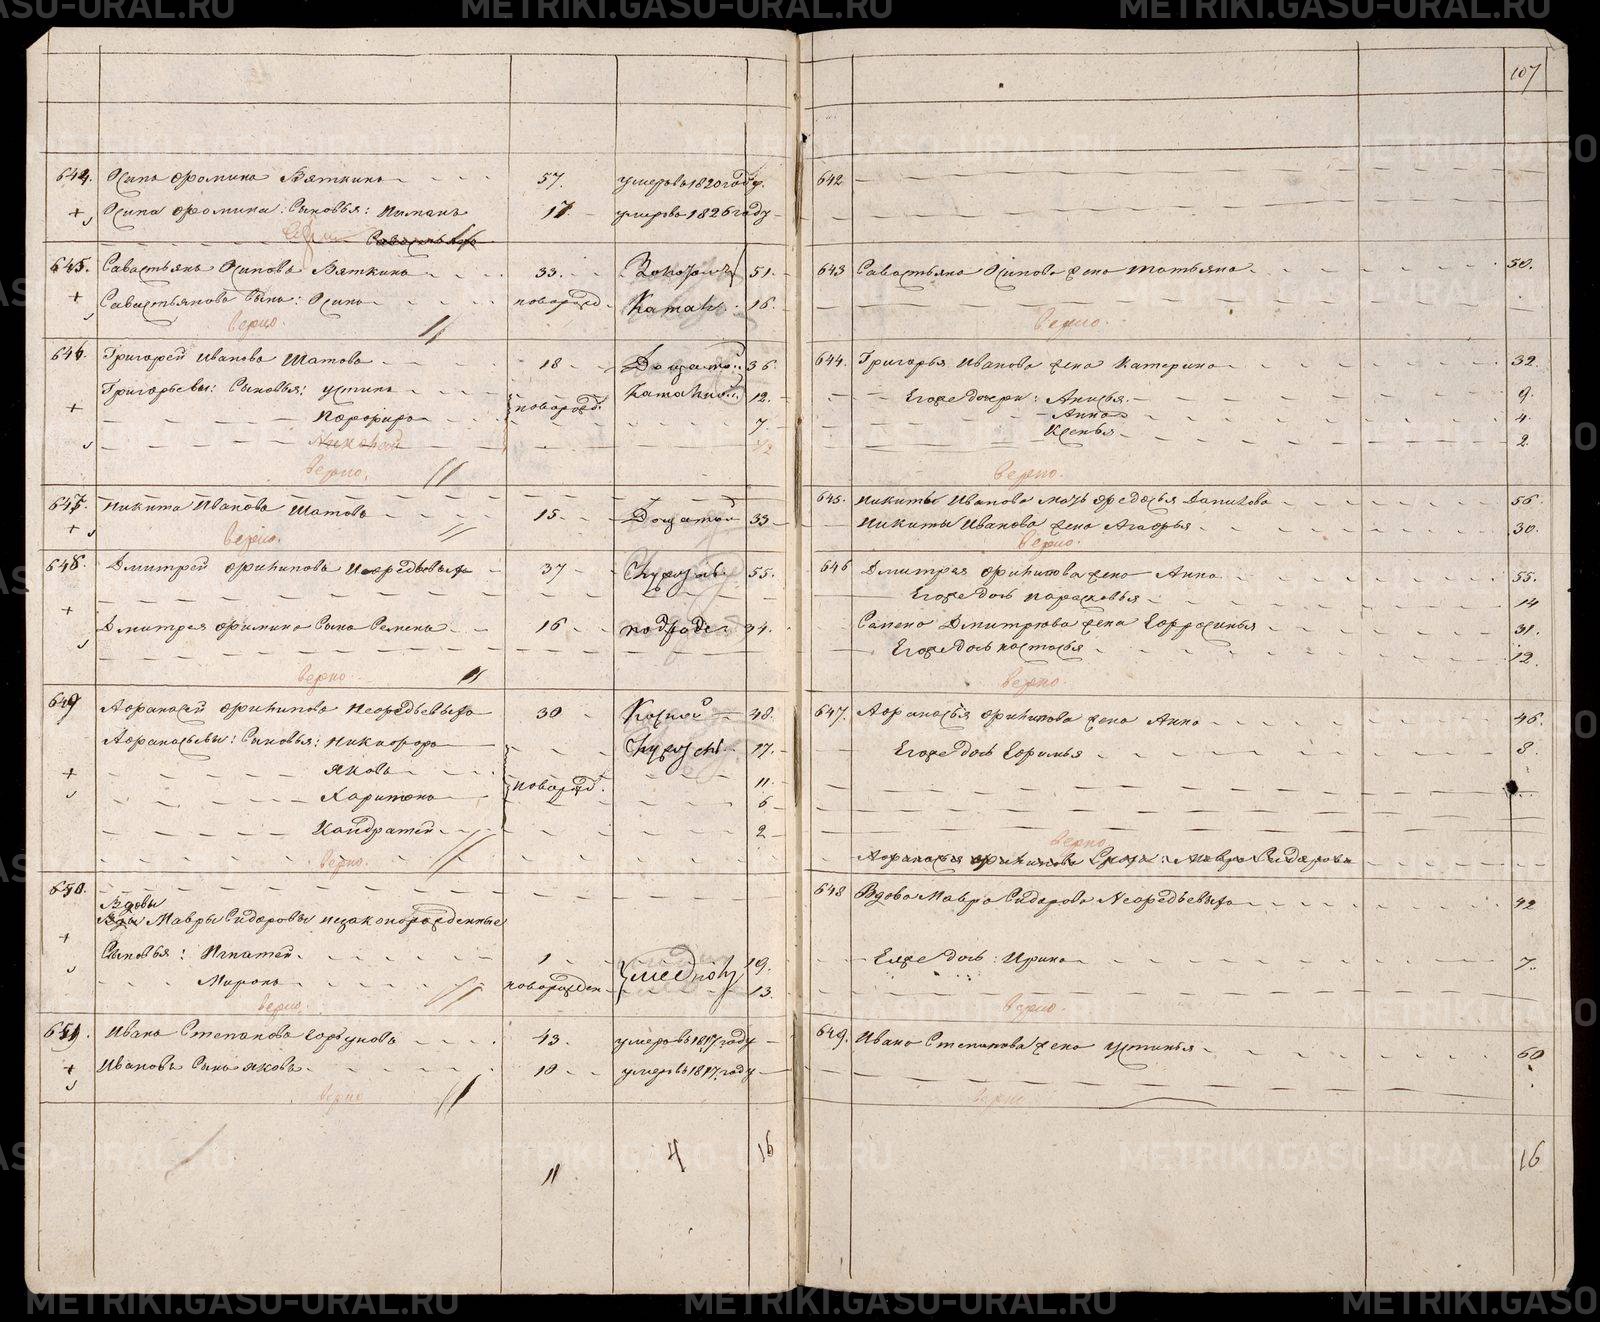 107
644. Осипъ Фоминъ Вяткинъ 57. умеръ въ 1820 году.
Осипа Фомина: Сыновья: Иванъ 17 умеръ въ 1826 году
645. Савастьянъ Осиповъ Вяткинъ 33. 51.
Савастьяновъ Сынъ: Осипъ новорожд. 16.
верно.
646. Григорей Ивановъ Шатовъ 18 36.
Григорьевы: Сыновья: Устинъ новорожд. 12.
Порфиръ 7.
1/2
верно.
647. Никита Ивановъ Шатовъ 15. 33
верно.
648. Дмитрей Филиповъ Нефедьевыхъ 37 55.
Дмитрея Филипова Сынъ Семенъ 16 34.
верно.
649 Афанасей Филиповъ Нефедьевыхъ 30 Косной 48.
Афанасьевы: Сыновья: Никифоръ 17.
Яковъ новорожд. 11
Харитонъ 6
Кондратей 2
верно.
650.
Вдовы
Мавры Сидоровы незаконорожденные
Сыновья: Игнатей 1 19.
Миронъ новорожден. 13.
верно.
651. Иванъ Степановъ Горбуновъ 43. умеръ въ 1817 году
Ивановъ Сынъ Яковъ 10 умеръ въ 1817 году
верно
11 4 16
642
643 Савастьяна Осипова жена Татьяна 50.
верно.
644. Григорья Иванова жена Катерина 32.
Его же дочери: Анисья 9.
Анна 4.
Ксенья 2.
верно.
645. Никиты Иванова мать Федосья Данилова 56
Никиты Иванова жена Агафья 30.
верно.
646 Дмитрея Филипова жена Анна 55.
Его же дочь Парасковья 14
Семена Дмитриева жена Ефросинья 31.
Его же дочь Настасья 12.
верно.
647. Афанасья Филипова жена Анна 46.
Его же дочь Ефимья 8.
верно
648 Вдова Мавра Сидорова Нефедьевыхъ 42
Ея же дочь: Ирина 7.
верно.
649. Ивана Степанова жена Устинья 60
верно
16
METRIKI.GASU-URAL.RU